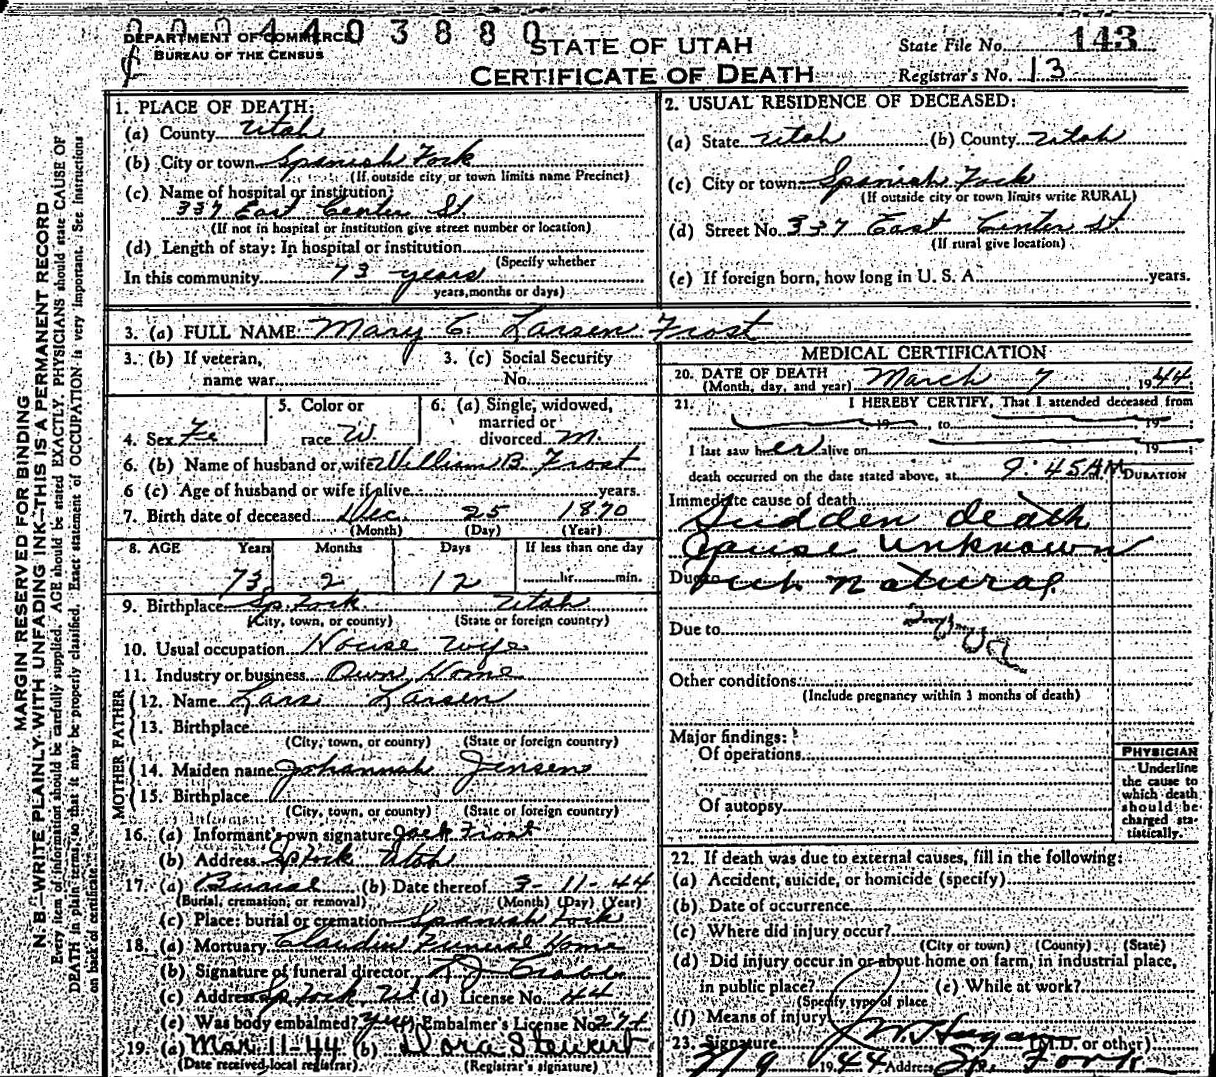 2004403880
DEPARTMENT OF COMMERCE
BUREAU OF THE CENSUS
STATE OF UTAH
CERTIFICATE OF DEATH
State File No. 143
Registrar's No. 13
MARGIN RESERVED FOR BINDING
N. B.—WRITE PLAINLY WITH UNFADING INK—THIS IS A PERMANENT RECORD
Every item of information should be carefully supplied. AGE should be stated EXACTLY. PHYSICIANS should state CAUSE OF
DEATH in plain terms, so that it may be properly classified. Exact statement of OCCUPATION is very important. See Instructions
on back of certificate.
1. PLACE OF DEATH:
(a) County Utah
(b) City or town Spanish Fork
(If outside city or town limits name Precinct)
(c) Name of hospital or institution:
337 East Center St.
(If not in hospital or institution give street number or location)
(d) Length of stay: In hospital or institution
(Specify whether
In this community 73 years
years, months or days)
2. USUAL RESIDENCE OF DECEASED:
(a) State Utah (b) County Utah
(c) City or town Spanish Fork
(If outside city or town limits write RURAL)
(d) Street No. 337 East Center St.
(If rural give location)
(e) If foreign born, how long in U. S. A. years.
3. (a) FULL NAME Mary C. Larsen Frost
3. (b) If veteran,
name war
3. (c) Social Security
No.
4. Sex Fe
5. Color or
race W.
6. (a) Single, widowed,
married or
divorced M.
6. (b) Name of husband or wife William B. Frost
6 (c) Age of husband or wife if alive years.
7. Birth date of deceased Dec. 25 1870
(Month) (Day) (Year)
8. AGE Years Months Days If less than one day
73 2 12 hr. min.
9. Birthplace Sp. Fork Utah
(City, town, or county) (State or foreign country)
10. Usual occupation House wife
11. Industry or business Own Home
FATHER
12. Name Lars Larsen
13. Birthplace
(City, town, or county) (State or foreign country)
MOTHER
14. Maiden name Johannah Jensen
15. Birthplace
(City, town, or county) (State or foreign country)
16. (a) Informant's own signature Jack Frost
(b) Address Sp Fork Utah
17. (a) Burial (b) Date thereof 3-11-44
(Burial, cremation, or removal) (Month) (Day) (Year)
(c) Place: burial or cremation Spanish Fork
18. (a) Mortuary Claudin Funeral Home
(b) Signature of funeral director
(c) Address Sp Fork Ut (d) License No. 44
(e) Was body embalmed? yes Embalmer's License No. 274
19. (a) Mar 11-44 (b) Dora Stewart
(Date received local registrar) (Registrar's signature)
MEDICAL CERTIFICATION
20. DATE OF DEATH
(Month, day, and year) March 7, 1944
21. I HEREBY CERTIFY, That I attended deceased from
19 , to 19
I last saw her alive on 19
death occurred on the date stated above, at 9:45 AM DURATION
Immediate cause of death
Sudden death
Cause unknown
Due to natural
Due to
Other conditions
(Include pregnancy within 3 months of death)
Major findings:
Of operations
Of autopsy
PHYSICIAN
Underline
the cause to
which death
should be
charged sta-
tistically.
22. If death was due to external causes, fill in the following:
(a) Accident, suicide, or homicide (specify)
(b) Date of occurrence
(c) Where did injury occur?
(City or town) (County) (State)
(d) Did injury occur in or about home on farm, in industrial place,
in public place? (e) While at work?
(Specify type of place
(f) Means of injury
23. Signature J. W. Hagan (M.D. or other)
3/9 1944 Address Sp. Fork